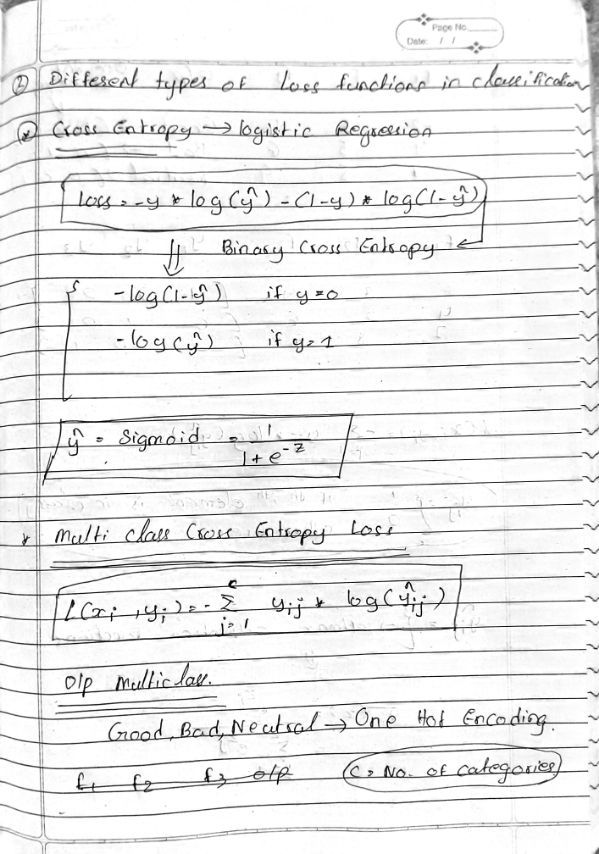 Page No.
Date: / /
② Different types of Loss functions in classification
* Cross Entropy → logistic Regression
Loss = -y * log(ŷ) - (1-y) * log(1-ŷ)
⇓ Binary Cross Entropy ←
{ -log(1-ŷ) if y=0
-log(ŷ) if y=1
ŷ = Sigmoid = 1 / (1 + e^-z)
* Multi class Cross Entropy Loss
L(xi, yi) = - Σ_{j=1}^{c} yij * log(ŷij)
O/p Multiclass.
Good, Bad, Neutral → One Hot Encoding.
f1 f2 f3 o/p C = No. of categories